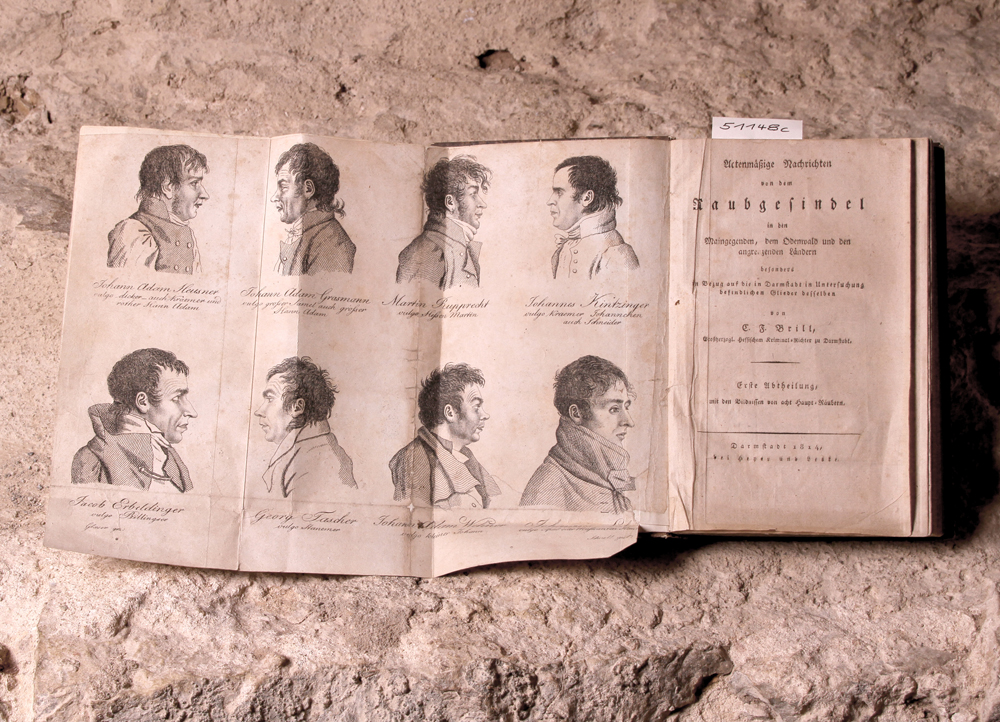 Johann Adam Heusner
vulgo dicker auch Krämer und
rother Hann Adam
Johann Adam Grasmann
vulgo großer Samel auch großer
Hann Adam
Martin Rupprecht
vulgo Hessen Martin
Johannes Kintzinger
vulgo Kraemer Johannchen
auch Schneider
Jacob Erbeldinger
vulgo
Georg Tascher
vulgo
Johann Adam
vulgo
51148c
Actenmäßige Nachrichten
von dem
Raubgesindel
in den
Maingegenden, dem Odenwald und den
angrenzenden Ländern
besonders
in Bezug auf die in Darmstadt in Untersuchung
befindlichen Glieder desselben
von
C. F. Brill,
Großherzogl. Hessischem Kriminal-Richter zu Darmstadt.
Erste Abtheilung,
mit den Bildnissen von acht Haupt-Räubern.
Darmstadt 1814,
bei und